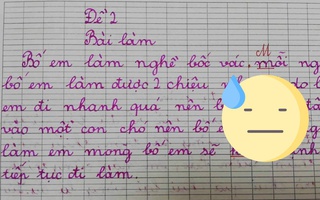 Đề 2
Bài làm
Bố em làm nghề bốc vác, mỗi ng
bố em làm được 2 chiêu do b
em đi nhanh quá nên b
vào một con chó nên bố e
làm em mong bố em sẽ
tiếp tục đi làm.